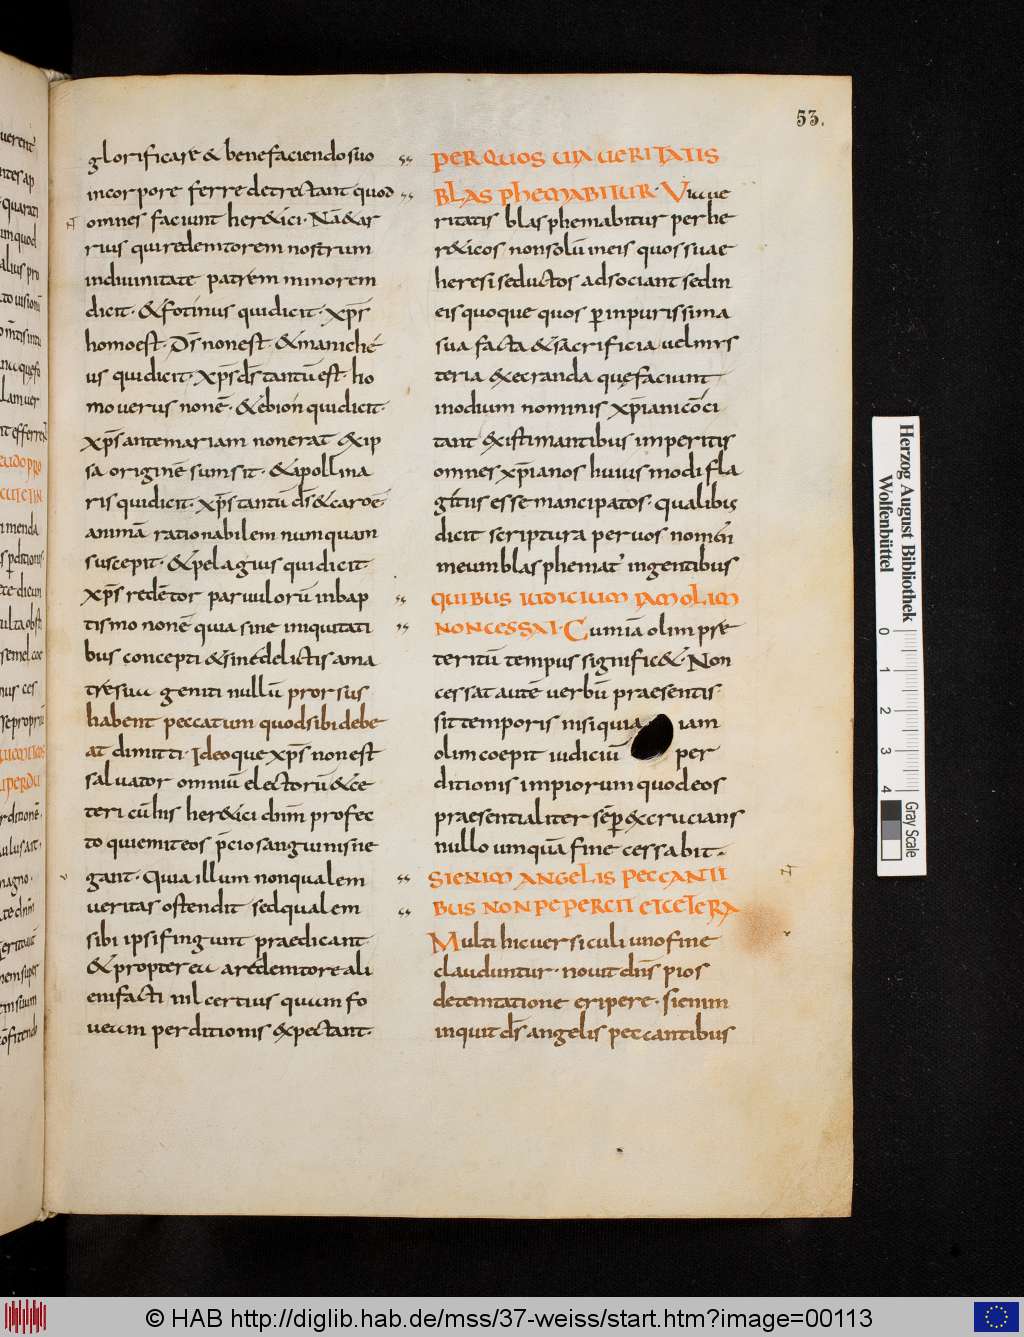 53.
glorificare & benefaciendo suo
incorpore ferre detrectant quod
omnes faciunt her&ici· Nā & ar
rius qui redemtorem nostrum
indiuinitate patrem minorem
dicit· & fotinus qui dicit· xp̄s
homo est· D̄s non est· & maniché
us qui dicit· xp̄s d̄s tantū est· ho
mo uerus non ē· & ebion qui dicit·
xp̄s ante mariam non erat & ip
sa originē sumsit· & apollina
ris qui dicit· xp̄s tantū d̄s & carnē
animā rationabilem numquam
suscepit· & pelagius qui dicit
xp̄s redētor paruulorū inbap
tismo non ē quia sine iniquitati
bus concepti & sine delictis ama
tre sua geniti nullū prorsus
habent peccatum quod sibi debe
at dimitti· Ideoque xp̄s non est
saluator omniū electorū & ce
teri cū his her&ici dn̄m profec
to qui emit eos p̄cio sanguinis ne
gant· Quia illum non qualem
ueritas ostendit sed qualem
sibi ipsi fingunt praedicant·
& propterea a redemtore ali
eni facti nil certius quam fo
ueam perditionis expectant·
PER QUOS UIA UERITATIS
BLASPHEMABITUR· Via ue
ritatis blasphemabitur per he
r&icos non solū in eis quos suae
heresi seductos adsociant sed in
eis quoque quos p̱ inpurissima
sua facta & sacrificia uel mys
teria execranda quę faciunt
inodium nominis xp̄iani cōci
tant existimantibus imperitis
omnes xp̄ianos huiusmodi fla
gitiis esse mancipatos· qualibus
dicit scriptura per uos nomen
meum blasphemat' ingentibus
QUIBUS IUDICIUM IAM OLIM
NON CESSAT· Cum iā olim prę
teritū tempus signific&· Non
cessat autē uerbū praesentis
sit temporis nisi quia iam
olim coepit iudiciū per
ditionis impiorum quod eos
praesentialiter sēp̱ excrucians
nullo umquā fine cessabit·
SI ENIM ANGELIS PECCANTI
BUS NON PEPERCIT ET CETERA
Multi hic uersiculi uno fine
clauduntur· nouit dn̄s pios
de temtatione eripere· si enim
inquit d̄s angelis peccantibus
Herzog August Bibliothek
Wolfenbüttel
0 1 2 3 4
Gray Scale
© HAB http://diglib.hab.de/mss/37-weiss/start.htm?image=00113